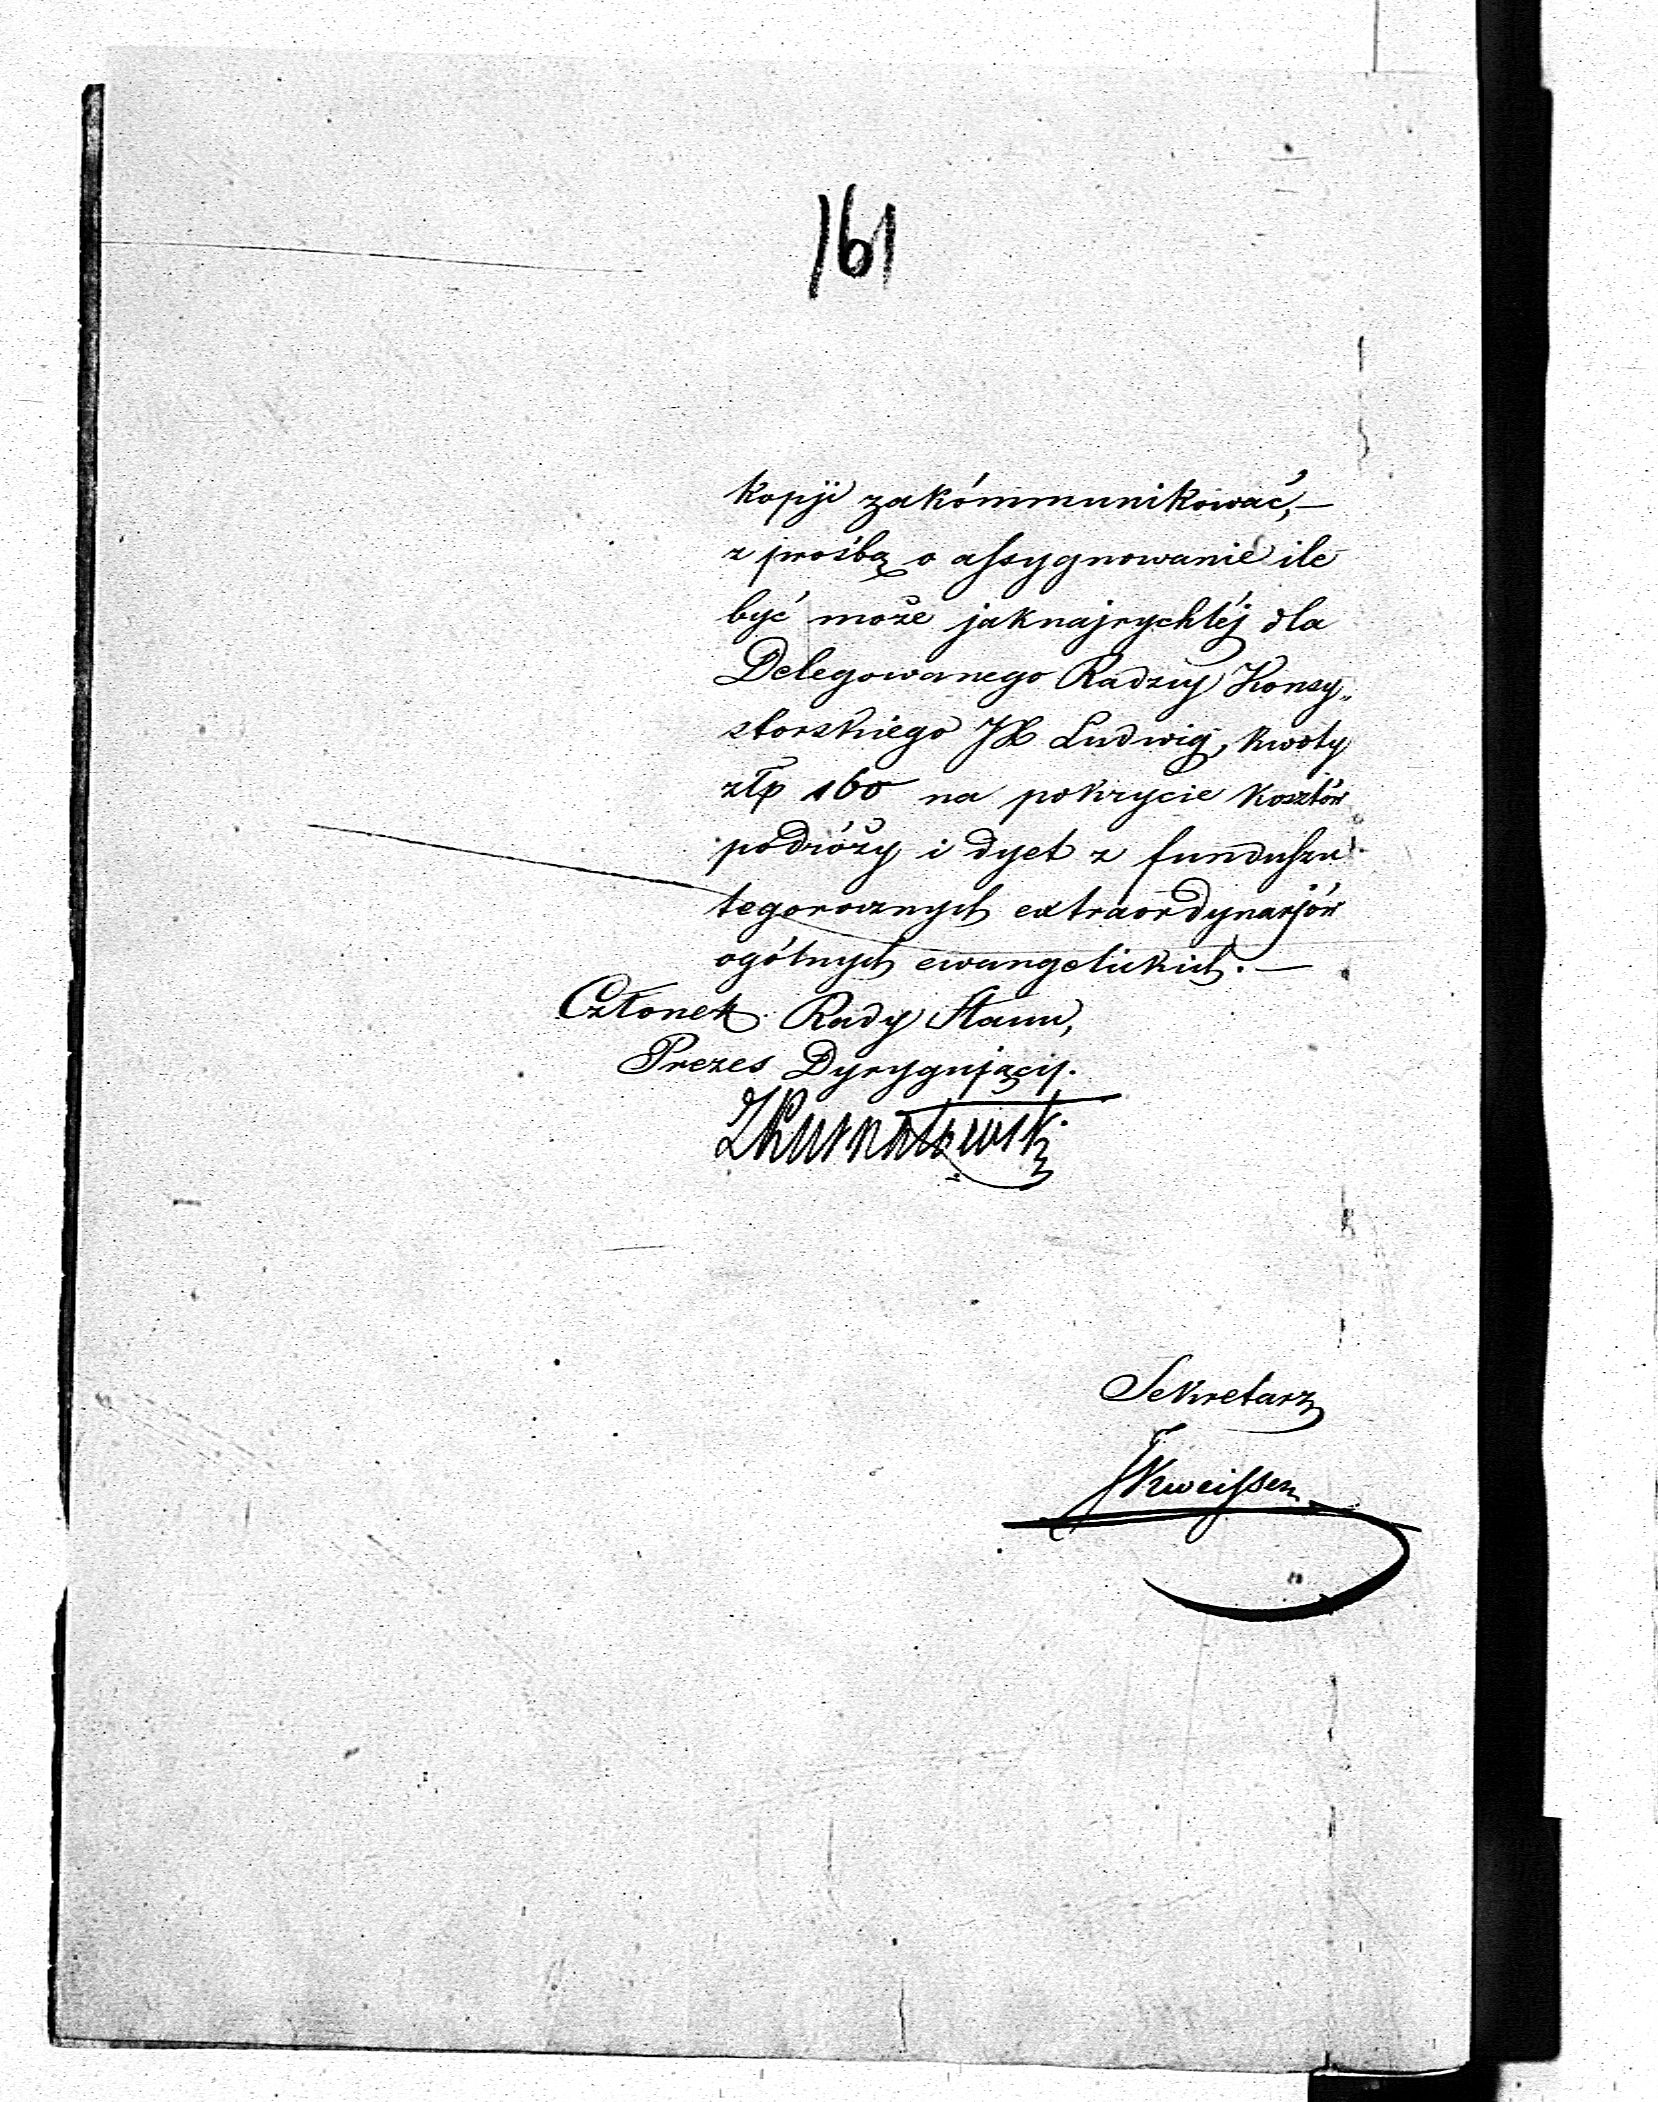 161
kopji zakómmunikować, —
z prośbą o assygnowanie ile
być może jaknajrychléj dla
Delegowanego Radzcy Konsy„
storskiego JX Ludwig, kwoty
złp 160 na pokrycie kosztów
podróży i dyet z funduszu
tegorocznych extraordynarjów
ogólnych ewangelickich. —
Członek Rady Stanu,
Prezes Dyrygujący.
Sekretarz